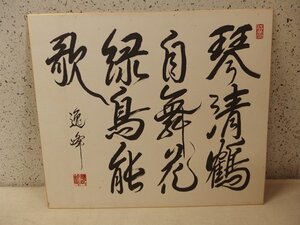 琴清鶴
自舞花
緑鳥能
歌
逸峰